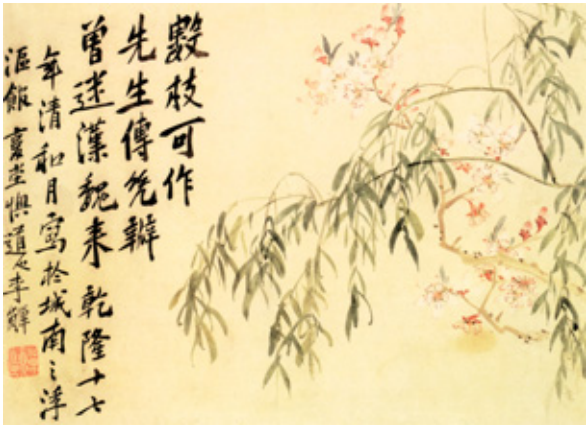 數枝可作
先生傳
曾迷漢魏来 乾隆十七
年清和月寫於城南之浮
漚館 复堂懊道人李鱓